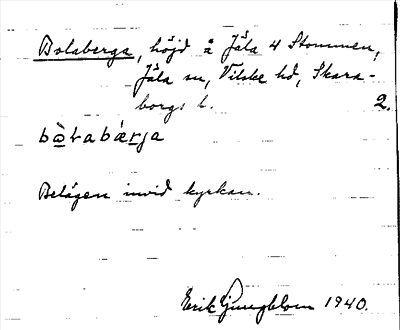 Bolaberga, höjd å Jäla 4 Stommen,
Jäla sn, Vilske hd, Skara-
borgs l. 2.
bò̱ɫabǽ̱rja
Belägen invid kyrkan.
Erik Ljungblom 1940.